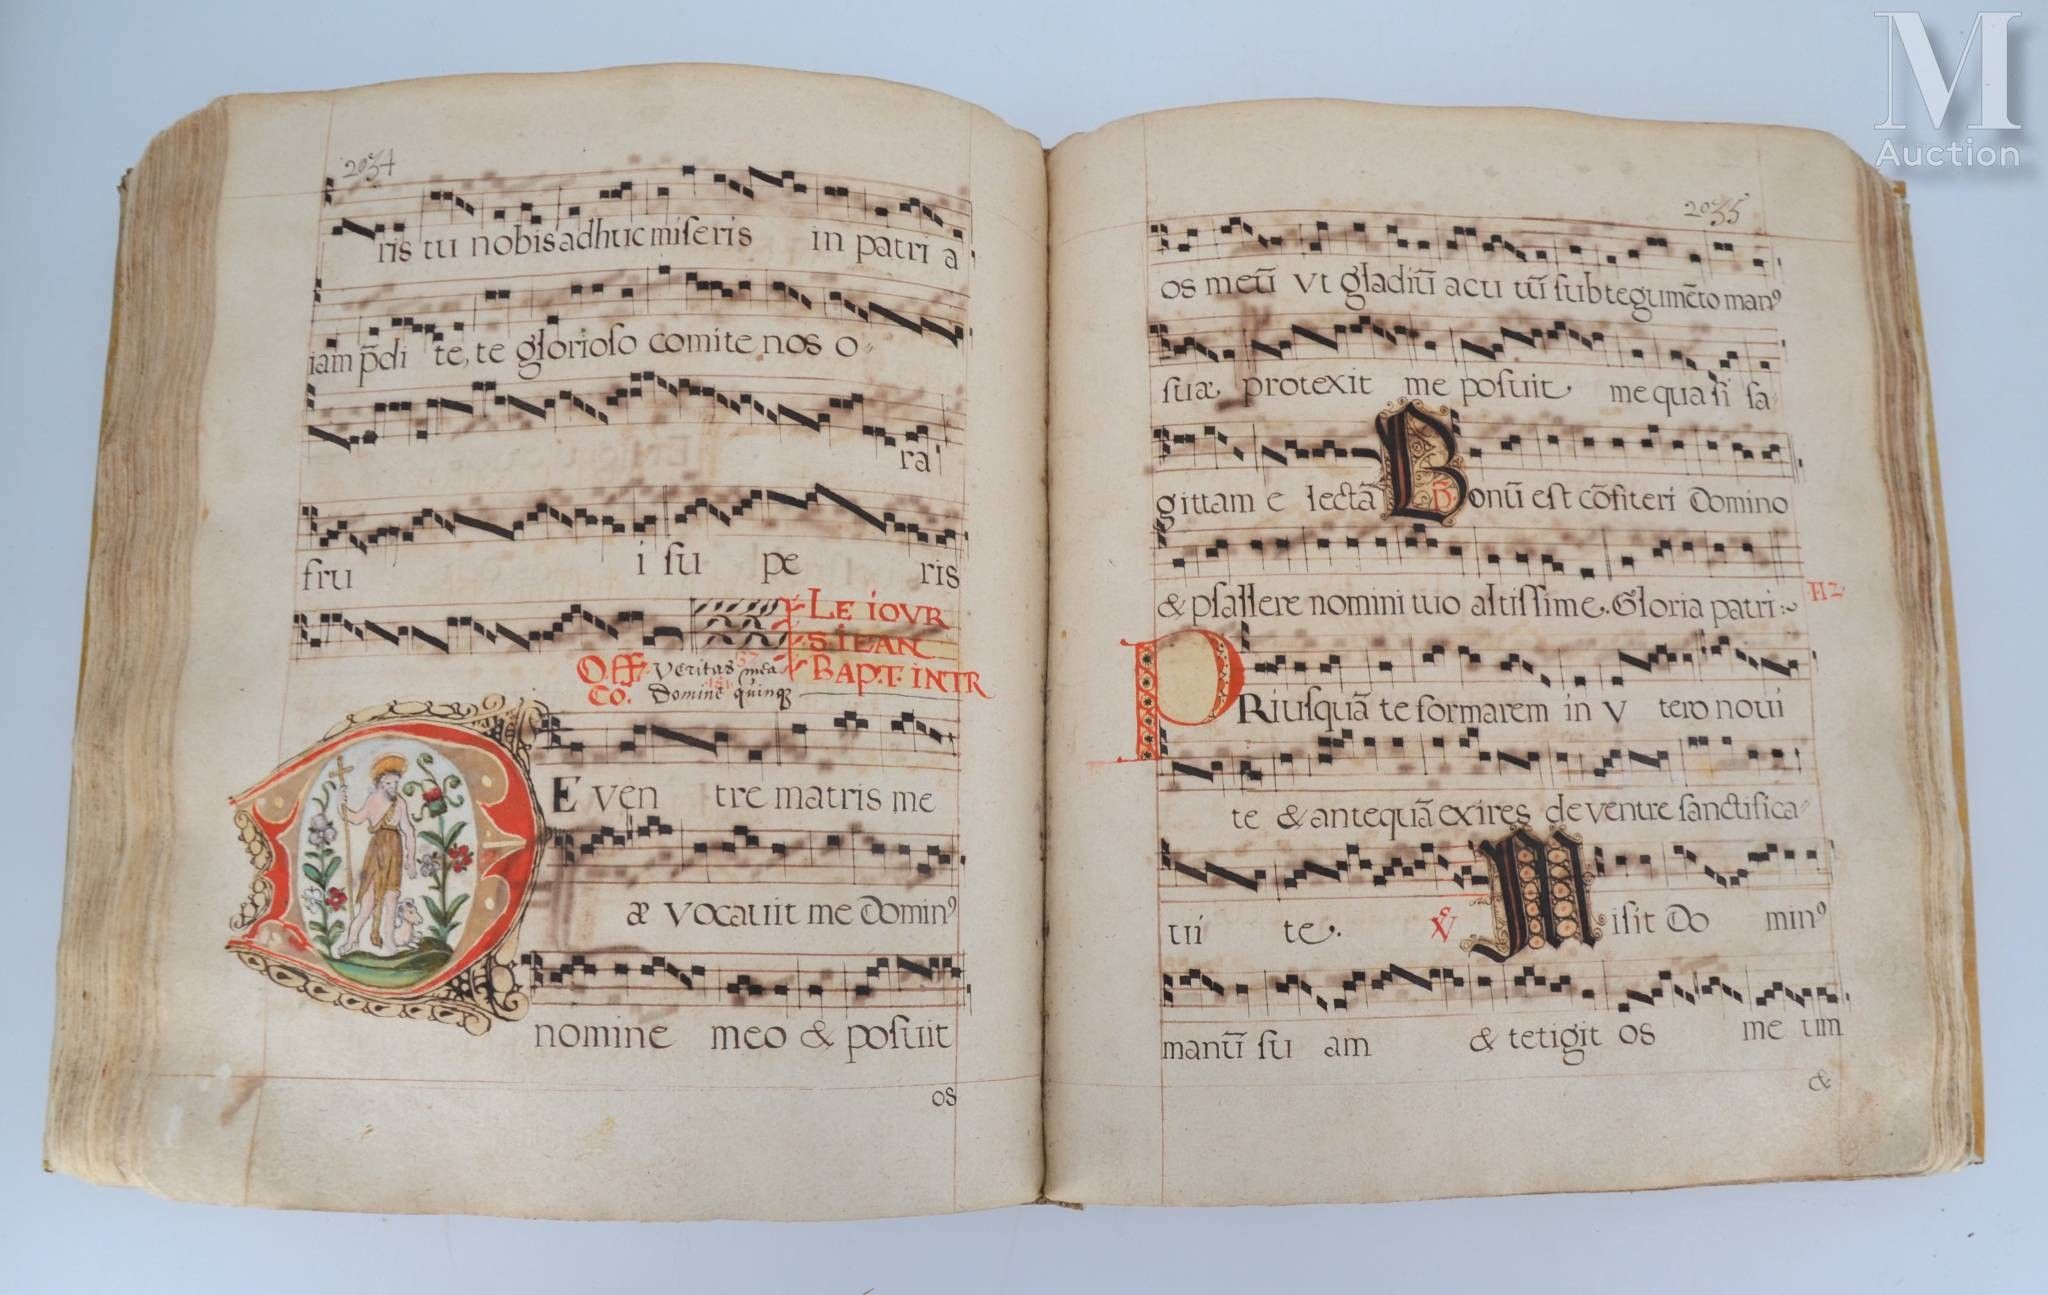 2034
ris tu nobis adhuc miseris in patri a
iam p̃di te, te glorioso comite nos o
ra
fru i su pe ris
LE IOVR
S. IEAN
BAPT. INTR
Off. Veritas mea
Co. Domine quinq
DE ven tre matris me
æ vocavit me Domin⁹
nomine meo & posuit
os
2035
os meũ vt gladiũ acu tũ sub tegumẽto man⁹
suæ protexit me posuit me quasi sa
gittam e lectã Bonũ est cõfiteri Domino
& psallere nomini tuo altissime. Gloria patri
PRiusquã te formarem in v tero novi
te & antequã exires de ventre sanctifica
vi te. ℣ Misit Do min⁹
manũ su am & tetigit os me um
&
M
Auction